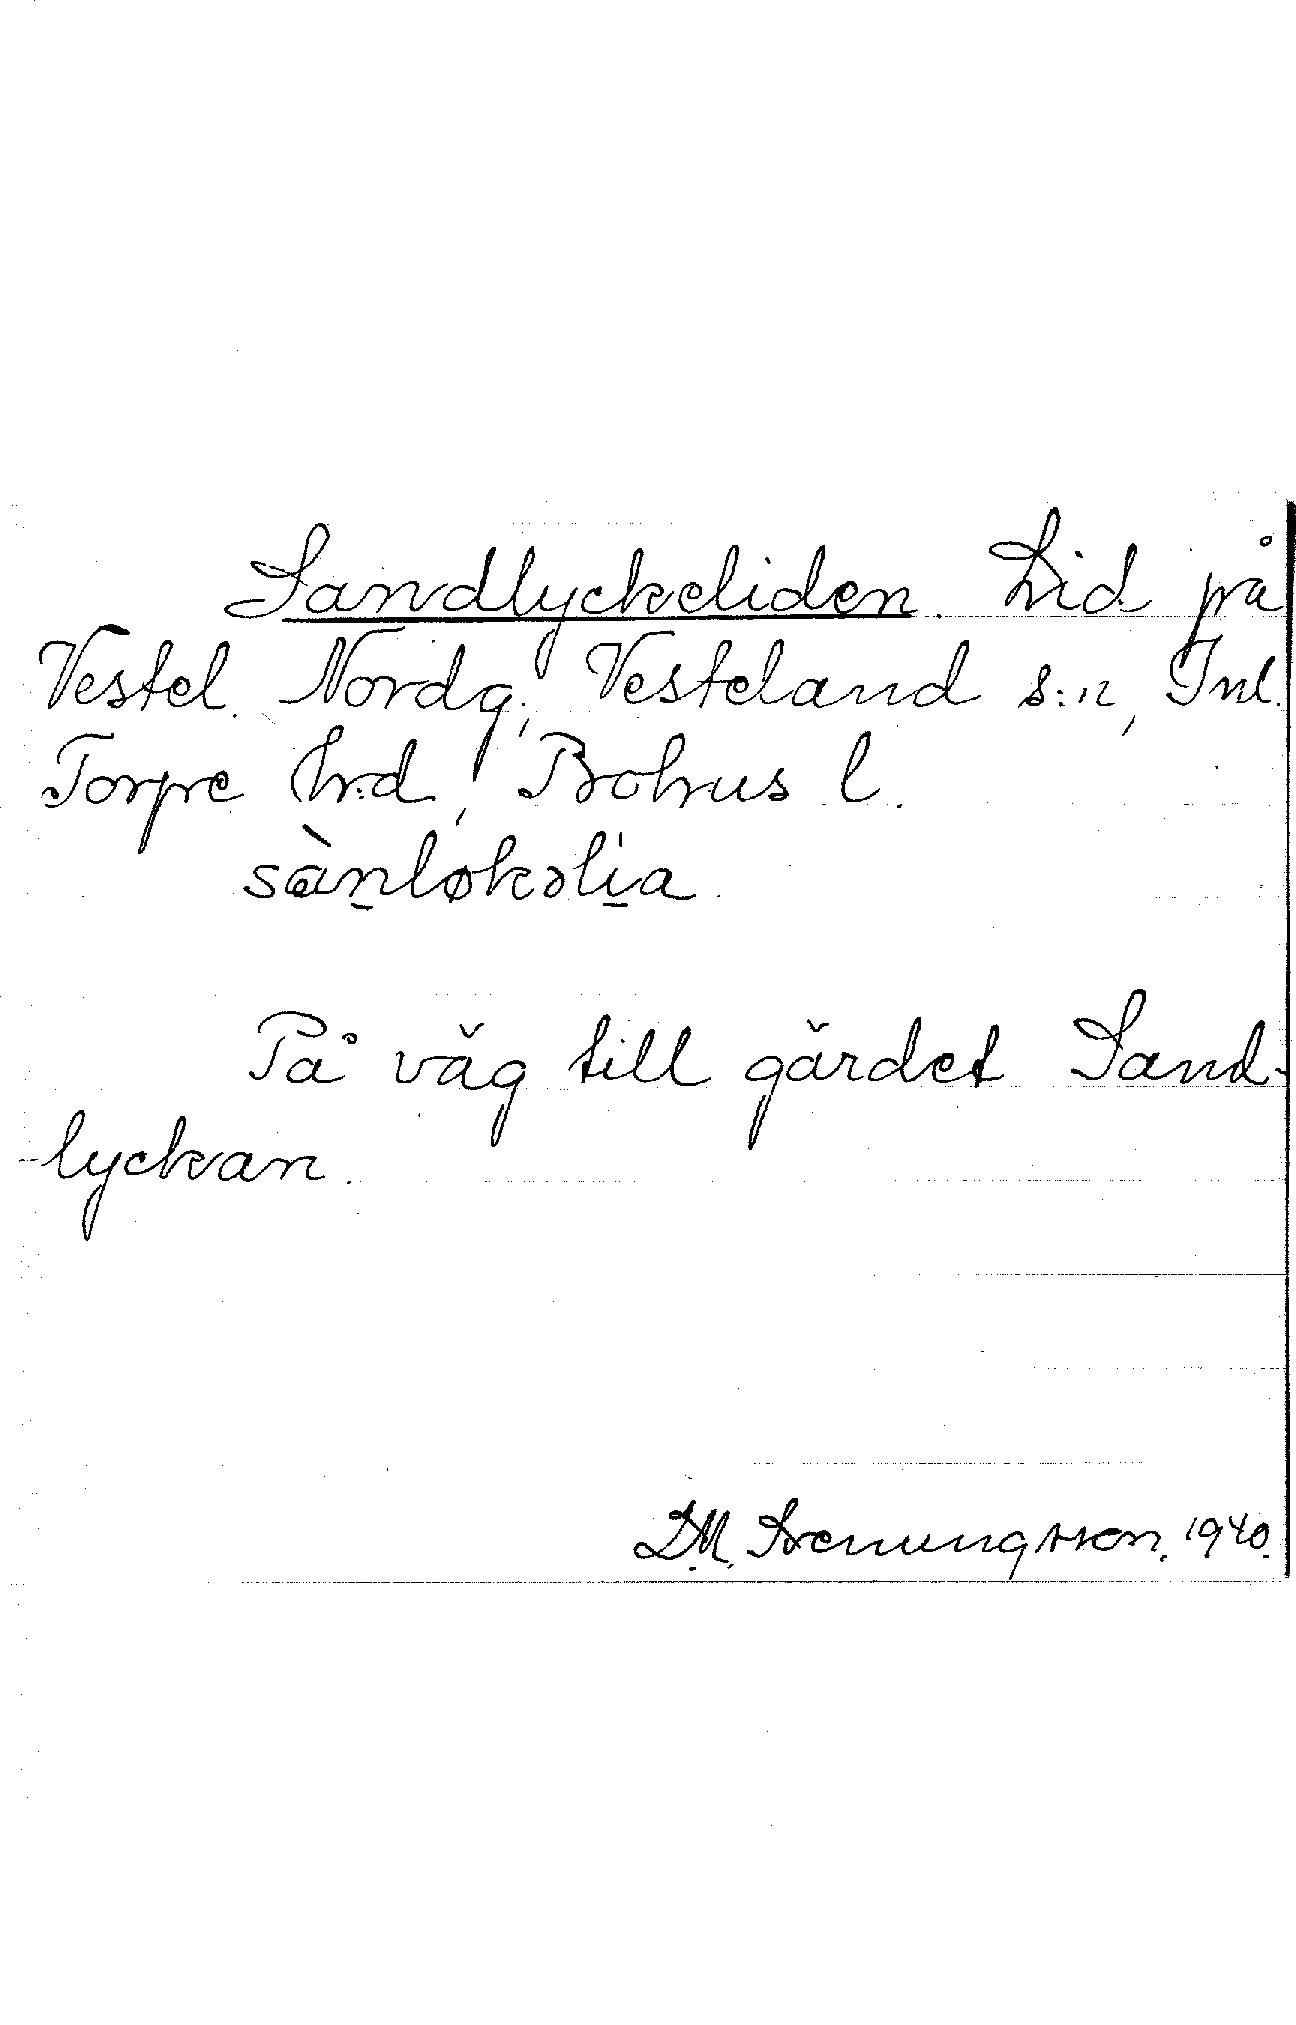 Sandlyckeliden. Lid på
Vestel. Nordg., Vesteland s:n, Inl.
Torpe hrd, Bohus l.
sàn̠løkəli̠a.
På väg till gärdet Sand-
lyckan.
D.M. Stenungsson. 1940.